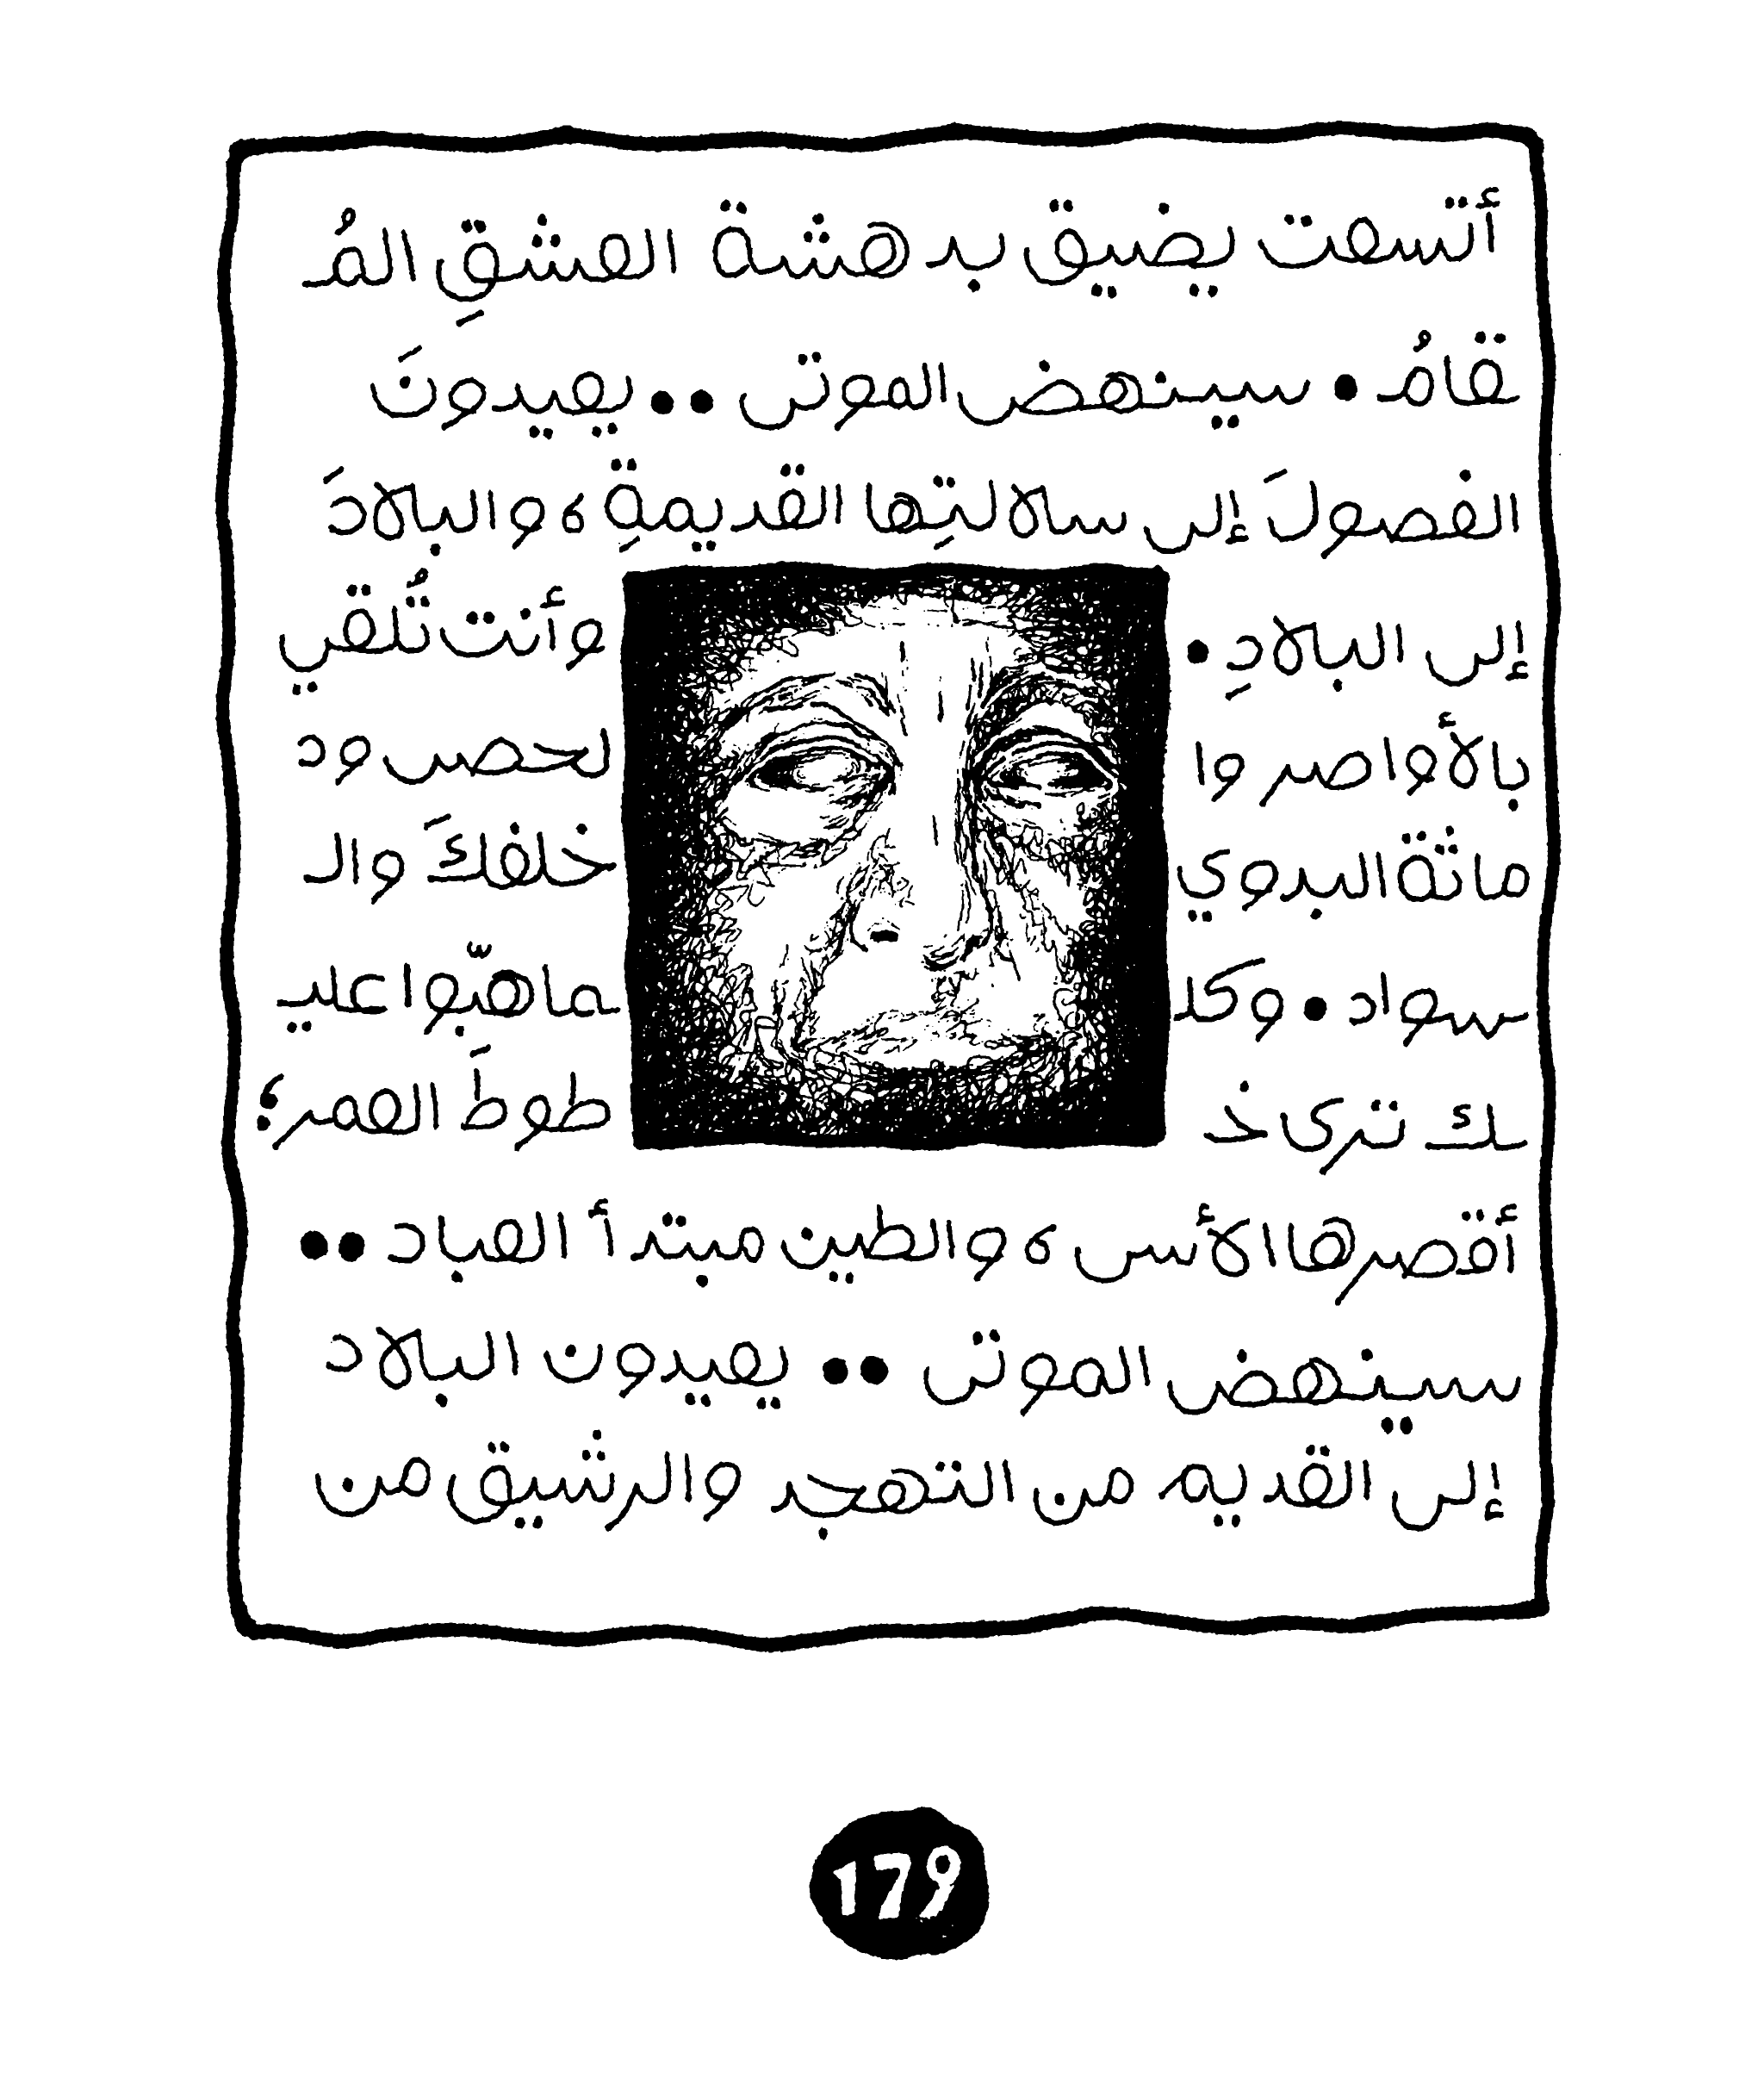 أتسعت يضيق بدهشة العشقِ المُـ
ـقامُ. سينهض الموتى.. يعيدونَ
الفصولَ إلى سلالتِها القديمةِ، والبلادَ
إلى البلادِ. وأنت تُلقي
بالأواصر والحصى ود
ماثة البدوي خلفكَ والـ
ـسواد. وكلـ ـما هبّوا عليـ
ـك ترى خـ ـطوطَ العمر؛
أقصرها الأسى، والطين مبتدأ العباد..
سينهض الموتى.. يعيدون البلاد
إلى القديم من التهجد والرشيق من
179